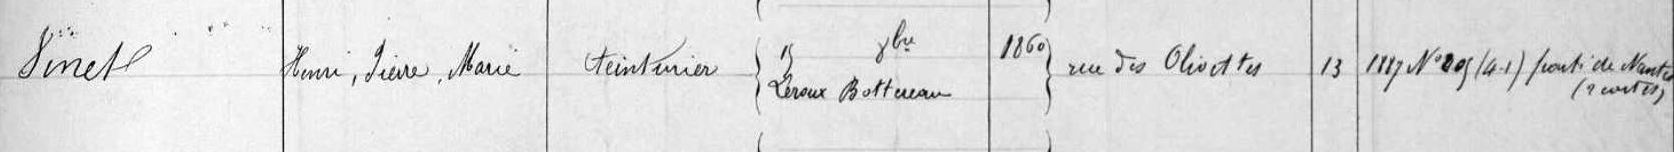 Vinet Henri, Pierre, Marie teinturier 15 xbre 1860 rue des Olivettes 13 1887 N° 205 (4-1) parti de Nantes
Leroux Bottereau (2 cartes)